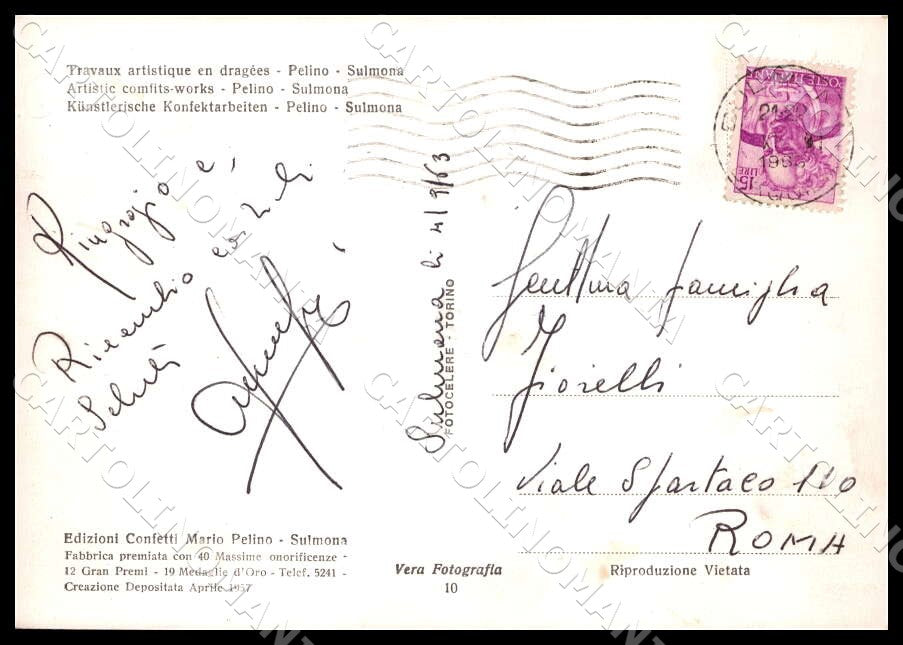 Travaux artistique en dragées - Pelino - Sulmona
Artistic comfits-works - Pelino - Sulmona
Künstlerische Konfektarbeiten - Pelino - Sulmona
Ringrazio e,
Ricambio
Saluti
Sulmona li 4/9/63
FOTOCELERE - TORINO
15 LIRE
Gentilma famiglia
Fiorelli
Viale Spartaco
ROMA
Edizioni Confetti Mario Pelino - Sulmona
Fabbrica premiata con 40 Massime onorificenze -
12 Gran Premi - 19 Medaglie d'Oro - Telef. 5241 -
Creazione Depositata Aprile 1957
Vera Fotografia
10
Riproduzione Vietata
CARTOLINOMANT